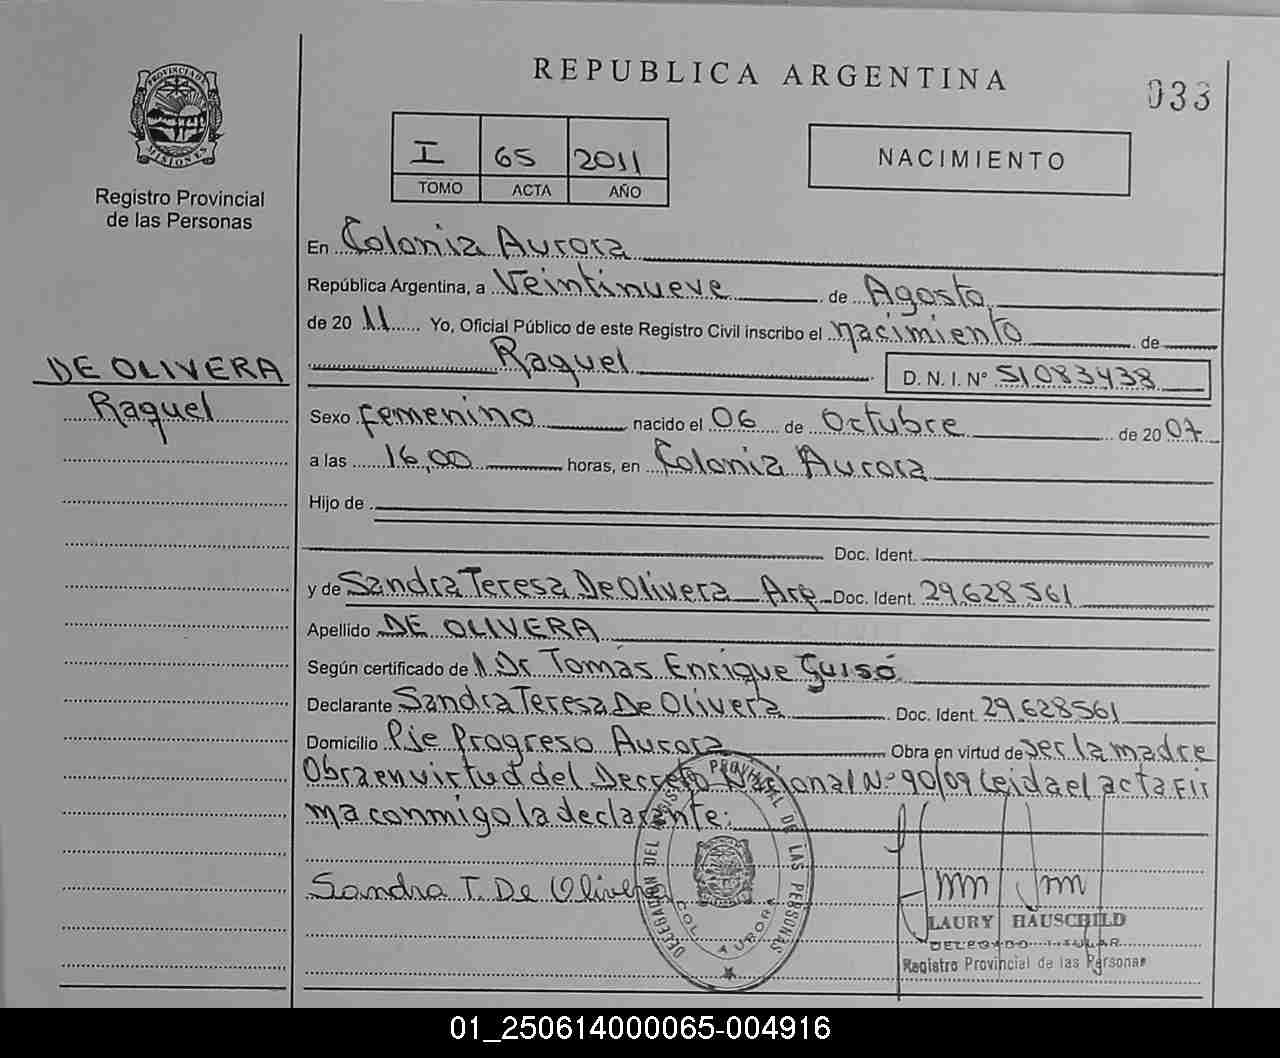 REPUBLICA ARGENTINA
033
PROVINCIA DE MISIONES
Registro Provincial
de las Personas
I 65 2011
TOMO ACTA AÑO
NACIMIENTO
En Colonia Aurora
República Argentina, a Veintinueve de Agosto
de 20 11 Yo, Oficial Público de este Registro Civil inscribo el nacimiento de
Raquel D. N. I. Nº 51083438
DE OLIVERA
Raquel
Sexo femenino nacido el 06 de Octubre de 20 07
a las 16,00 horas, en Colonia Aurora
Hijo de
Doc. Ident.
y de Sandra Teresa De Olivera Arg Doc. Ident. 29.628561
Apellido DE OLIVERA
Según certificado de Dr Tomás Enrique Guisó
Declarante Sandra Teresa De Olivera Doc. Ident. 29.628561
Domicilio Pje Progreso Aurora Obra en virtud de ser la madre
Obra en virtud del Decreto Nacional Nº 90/09 Leida el acta Fir
ma conmigo la declarante:
Sandra T. De Olivera
DELEGACION DEL REGISTRO PROVINCIAL DE LAS PERSONAS
COL. AURORA
LAURY HAUSCHILD
DELEGADO TITULAR
Registro Provincial de las Personas
01_250614000065-004916